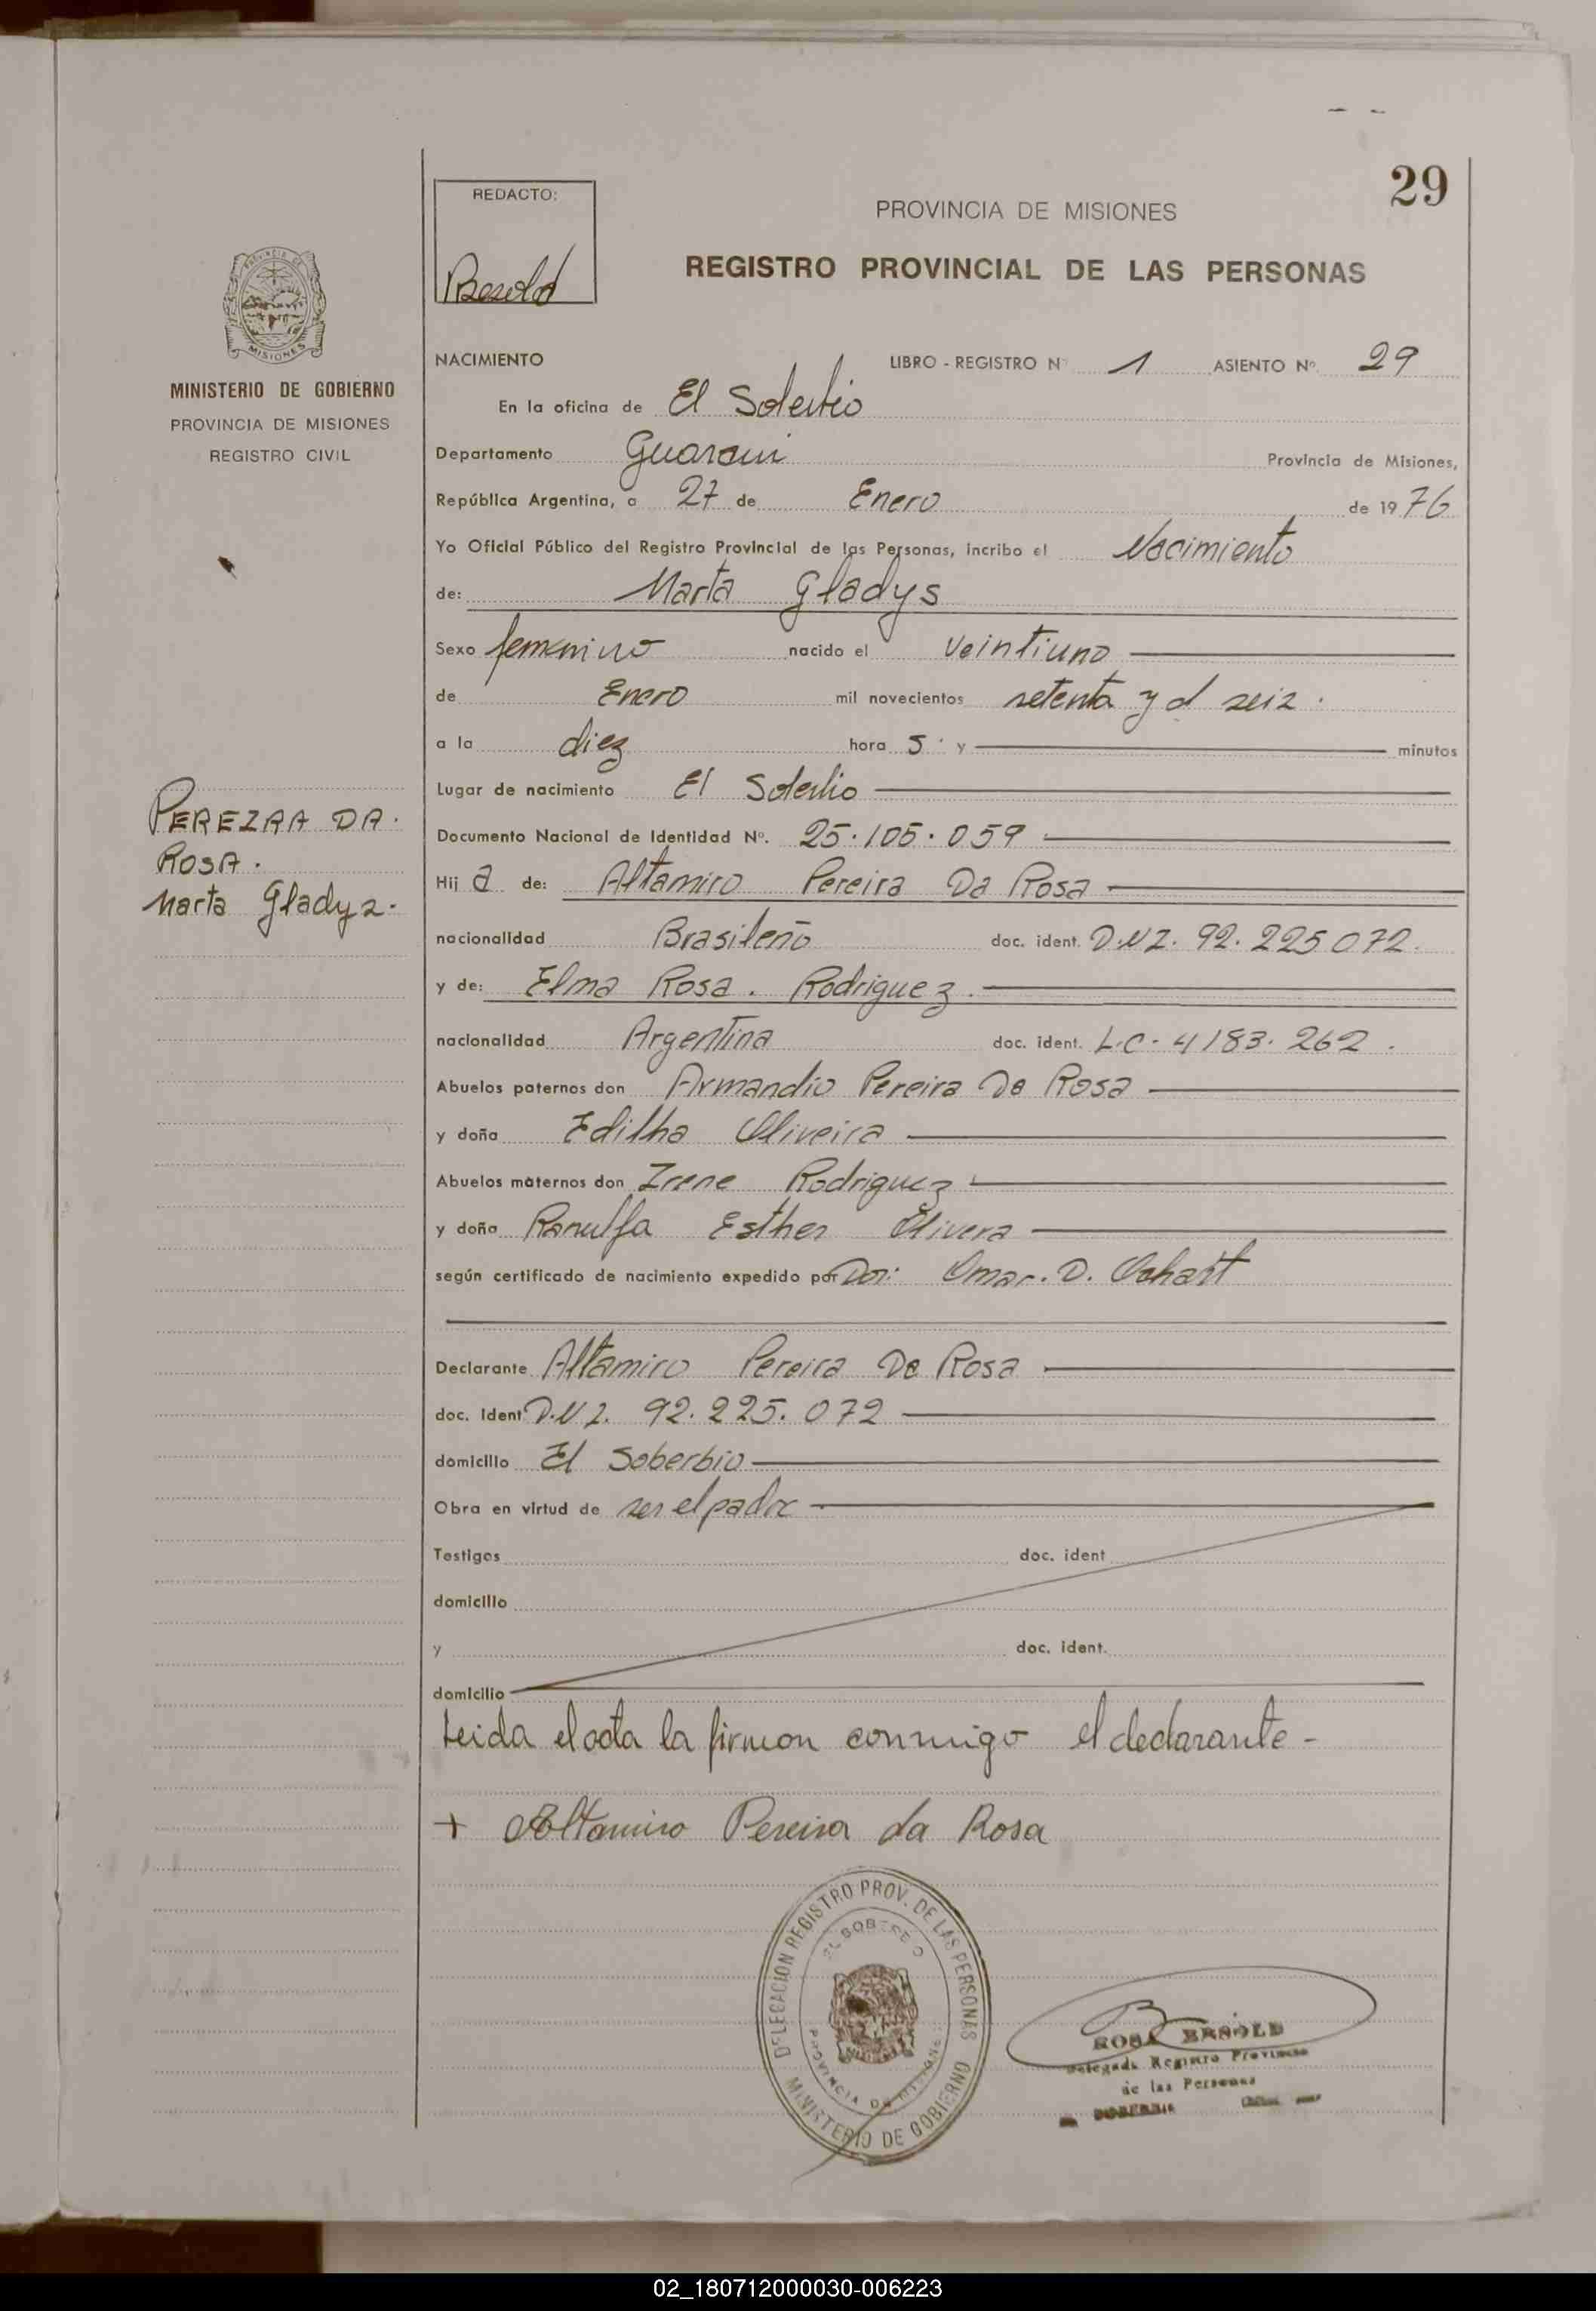 29
REDACTO:
Besold
PROVINCIA DE MISIONES
REGISTRO PROVINCIAL DE LAS PERSONAS
PROVINCIA DE
MISIONES
MINISTERIO DE GOBIERNO
PROVINCIA DE MISIONES
REGISTRO CIVIL
NACIMIENTO LIBRO - REGISTRO Nº 1 ASIENTO Nº. 29
En la oficina de El Soberbio
Departamento Guarani Provincia de Misiones,
República Argentina, a 27 de Enero de 1976
Yo Oficial Público del Registro Provincial de las Personas, incribo el Nacimiento
de: Marta Gladys
Sexo femenino nacido el veintiuno
de Enero mil novecientos setenta y d seis.
a la diez hora s. y minutos
Lugar de nacimiento El Soberbio
Documento Nacional de Identidad Nº. 25.105.059
PEREIRA DA.
ROSA.
Marta Gladys.
Hij a de: Altamiro Pereira Da Rosa
nacionalidad Brasileño doc. ident. D.N.I. 92.225072.
y de: Elma Rosa. Rodriguez.
nacionalidad Argentina doc. ident. L.C. 4183.262.
Abuelos paternos don Armandio Pereira Da Rosa
y doña Editha Oliveira
Abuelos maternos don Irene Rodriguez
y doña Ranulfa Esther Olivera
según certificado de nacimiento expedido por Dor: Omar. D.
Declarante Altamiro Pereira Da Rosa
doc. Ident D.N.I. 92.225.072
domicilio El Soberbio
Obra en virtud de ser el padre
Testigos doc. ident
domicilio
y doc. ident.
domicilio
Leida el acta la firman conmigo el declarante -
+ Altamiro Pereira da Rosa
DELEGACION REGISTRO PROV. DE LAS PERSONAS
EL SOBERBIO
PROVINCIA DE MISIONES
MINISTERIO DE GOBIERNO
ROSA BESOLD
Delegada Registro Provincial
de las Personas
EL SOBERBIO
02_180712000030-006223